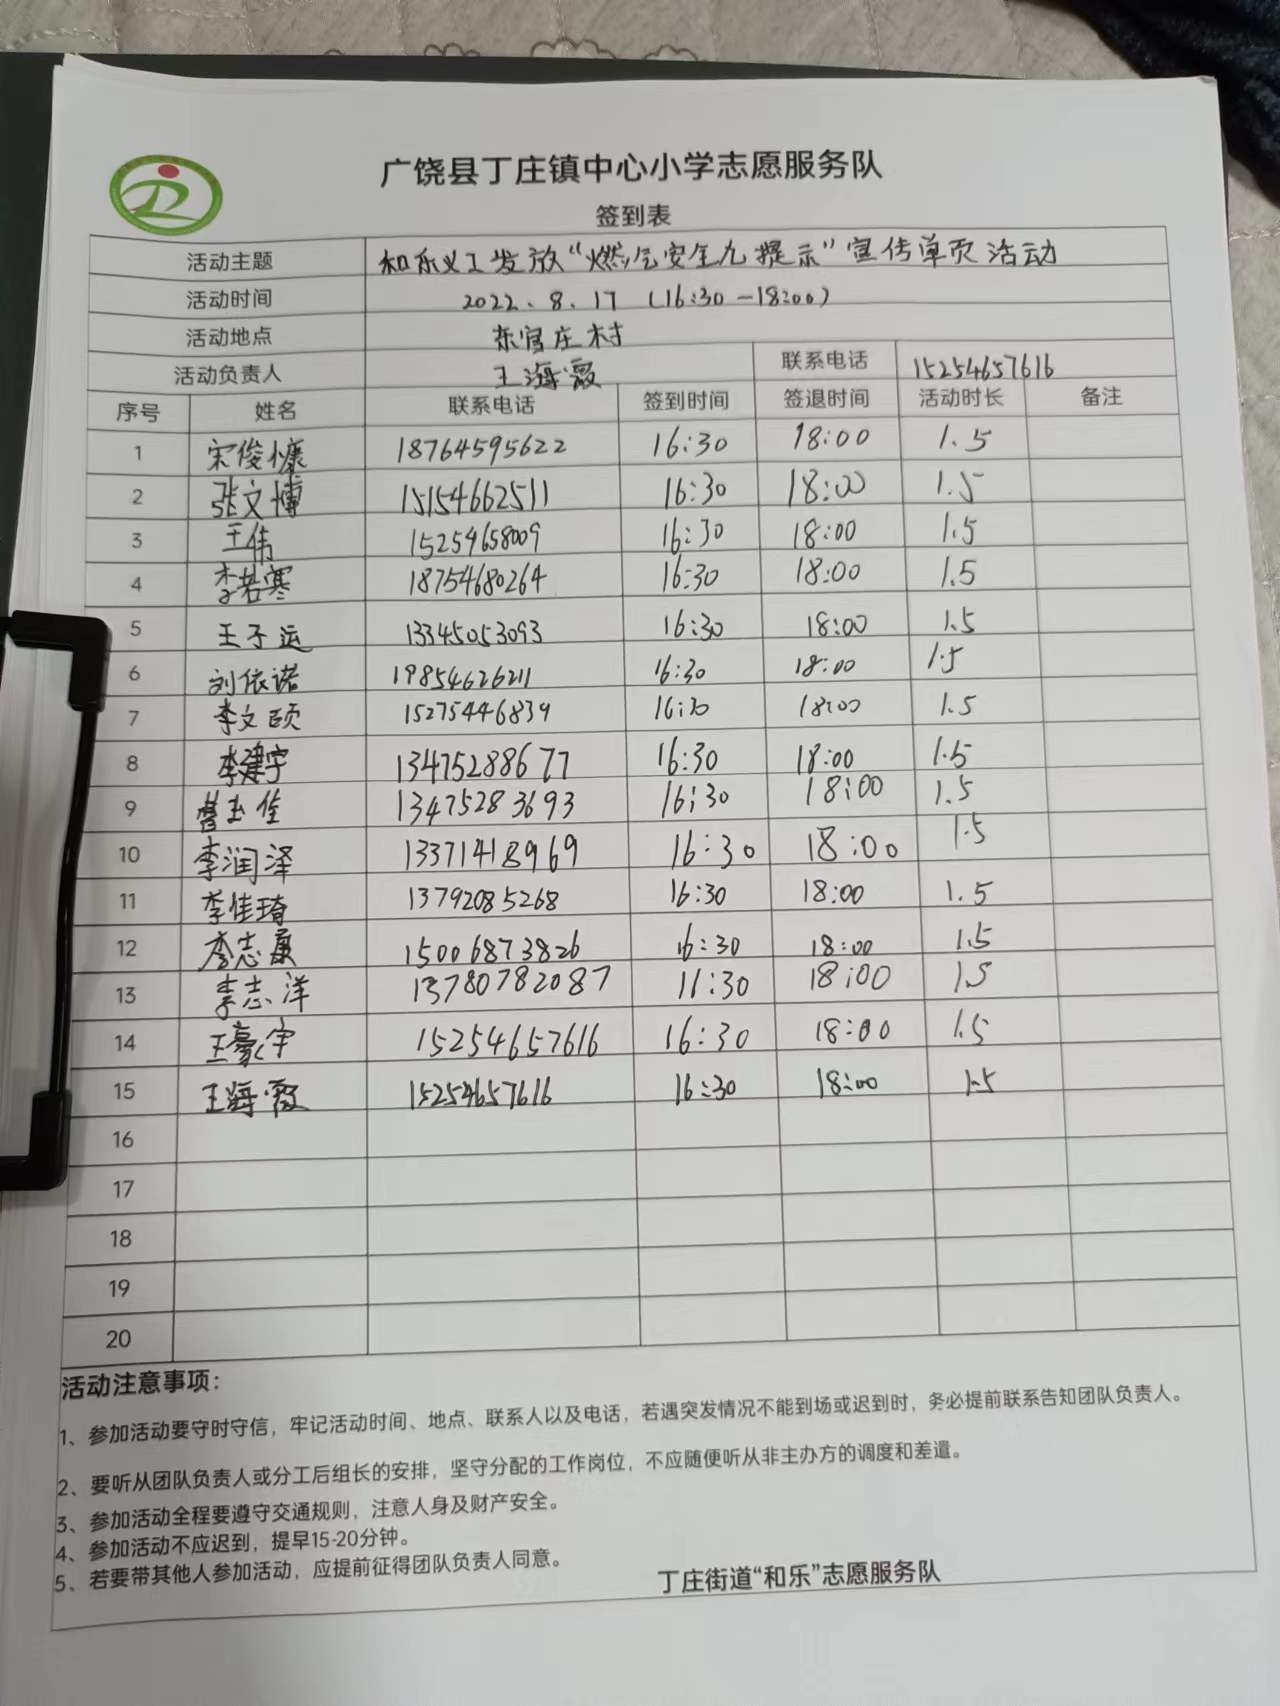 广饶县丁庄镇中心小学志愿服务队
签到表
活动主题 和乐义工发放“燃气安全九提示”宣传单页活动
活动时间 2022.8.17 (16:30-18:00)
活动地点 东官庄村
活动负责人 王海霞 联系电话 15254657616
序号 姓名 联系电话 签到时间 签退时间 活动时长 备注
1 宋俊慷 18764595622 16:30 18:00 1.5
2 张文博 15154662511 16:30 18:00 1.5
3 王伟 15254658009 16:30 18:00 1.5
4 李若寒 18754680264 16:30 18:00 1.5
5 王子运 13345053093 16:30 18:00 1.5
6 刘依诺 19854626211 16:30 18:00 1.5
7 李文硕 15275446839 16:30 18:00 1.5
8 李建宇 13475288677 16:30 18:00 1.5
9 曹玉佳 13475283693 16:30 18:00 1.5
10 李润泽 13371418969 16:30 18:00 1.5
11 李佳琦 13792085268 16:30 18:00 1.5
12 李志康 15006873826 16:30 18:00 1.5
13 李志洋 13780782087 16:30 18:00 1.5
14 王豪宇 15254657616 16:30 18:00 1.5
15 王海霞 15254657616 16:30 18:00 1.5
16
17
18
19
20
活动注意事项:
1、参加活动要守时守信，牢记活动时间、地点、联系人以及电话，若遇突发情况不能到场或迟到时，务必提前联系告知团队负责人。
2、要听从团队负责人或分工后组长的安排，坚守分配的工作岗位，不应随便听从非主办方的调度和差遣。
3、参加活动全程要遵守交通规则，注意人身及财产安全。
4、参加活动不应迟到，提早15-20分钟。
5、若要带其他人参加活动，应提前征得团队负责人同意。
丁庄街道“和乐”志愿服务队